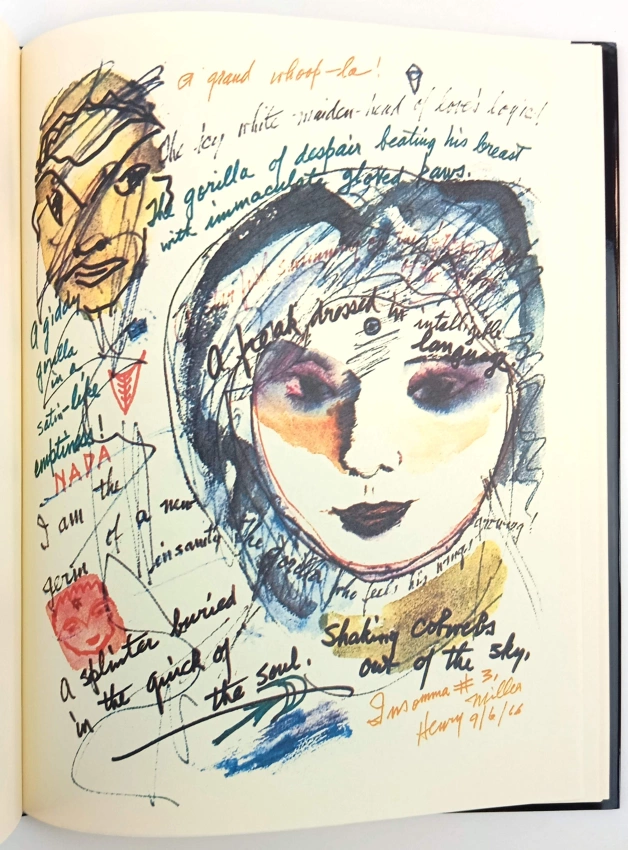 a grand whoop-la!
The icy white maiden-head of love's logic!
The gorilla of despair beating his breast
with immaculate gloved paws.
A freak dressed in intelligible
language
A giddy
gorilla
in a
satin-like
emptiness!
NADA
I am the
germ of a new
insanity
The gorilla
who feels his wings growing!
A splinter buried
in the quick of
the soul.
Shaking cobwebs
out of the sky.
Insomnia #3.
Henry Miller
9/6/66